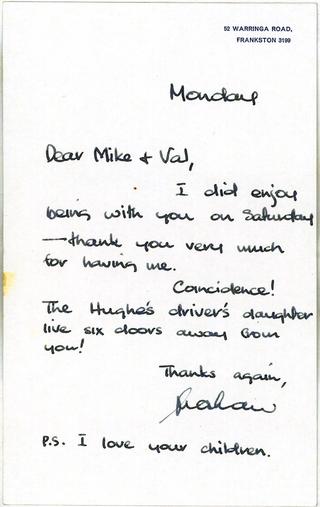 52 WARRINGA ROAD,
FRANKSTON 3199
Monday
Dear Mike & Val,
I did enjoy
being with you on Saturday
— thank you very much
for having me.
Coincidence!
The Hughe's driver's daughter
live six doors away from
you!
Thanks again,
Graham
P.S. I love your children.